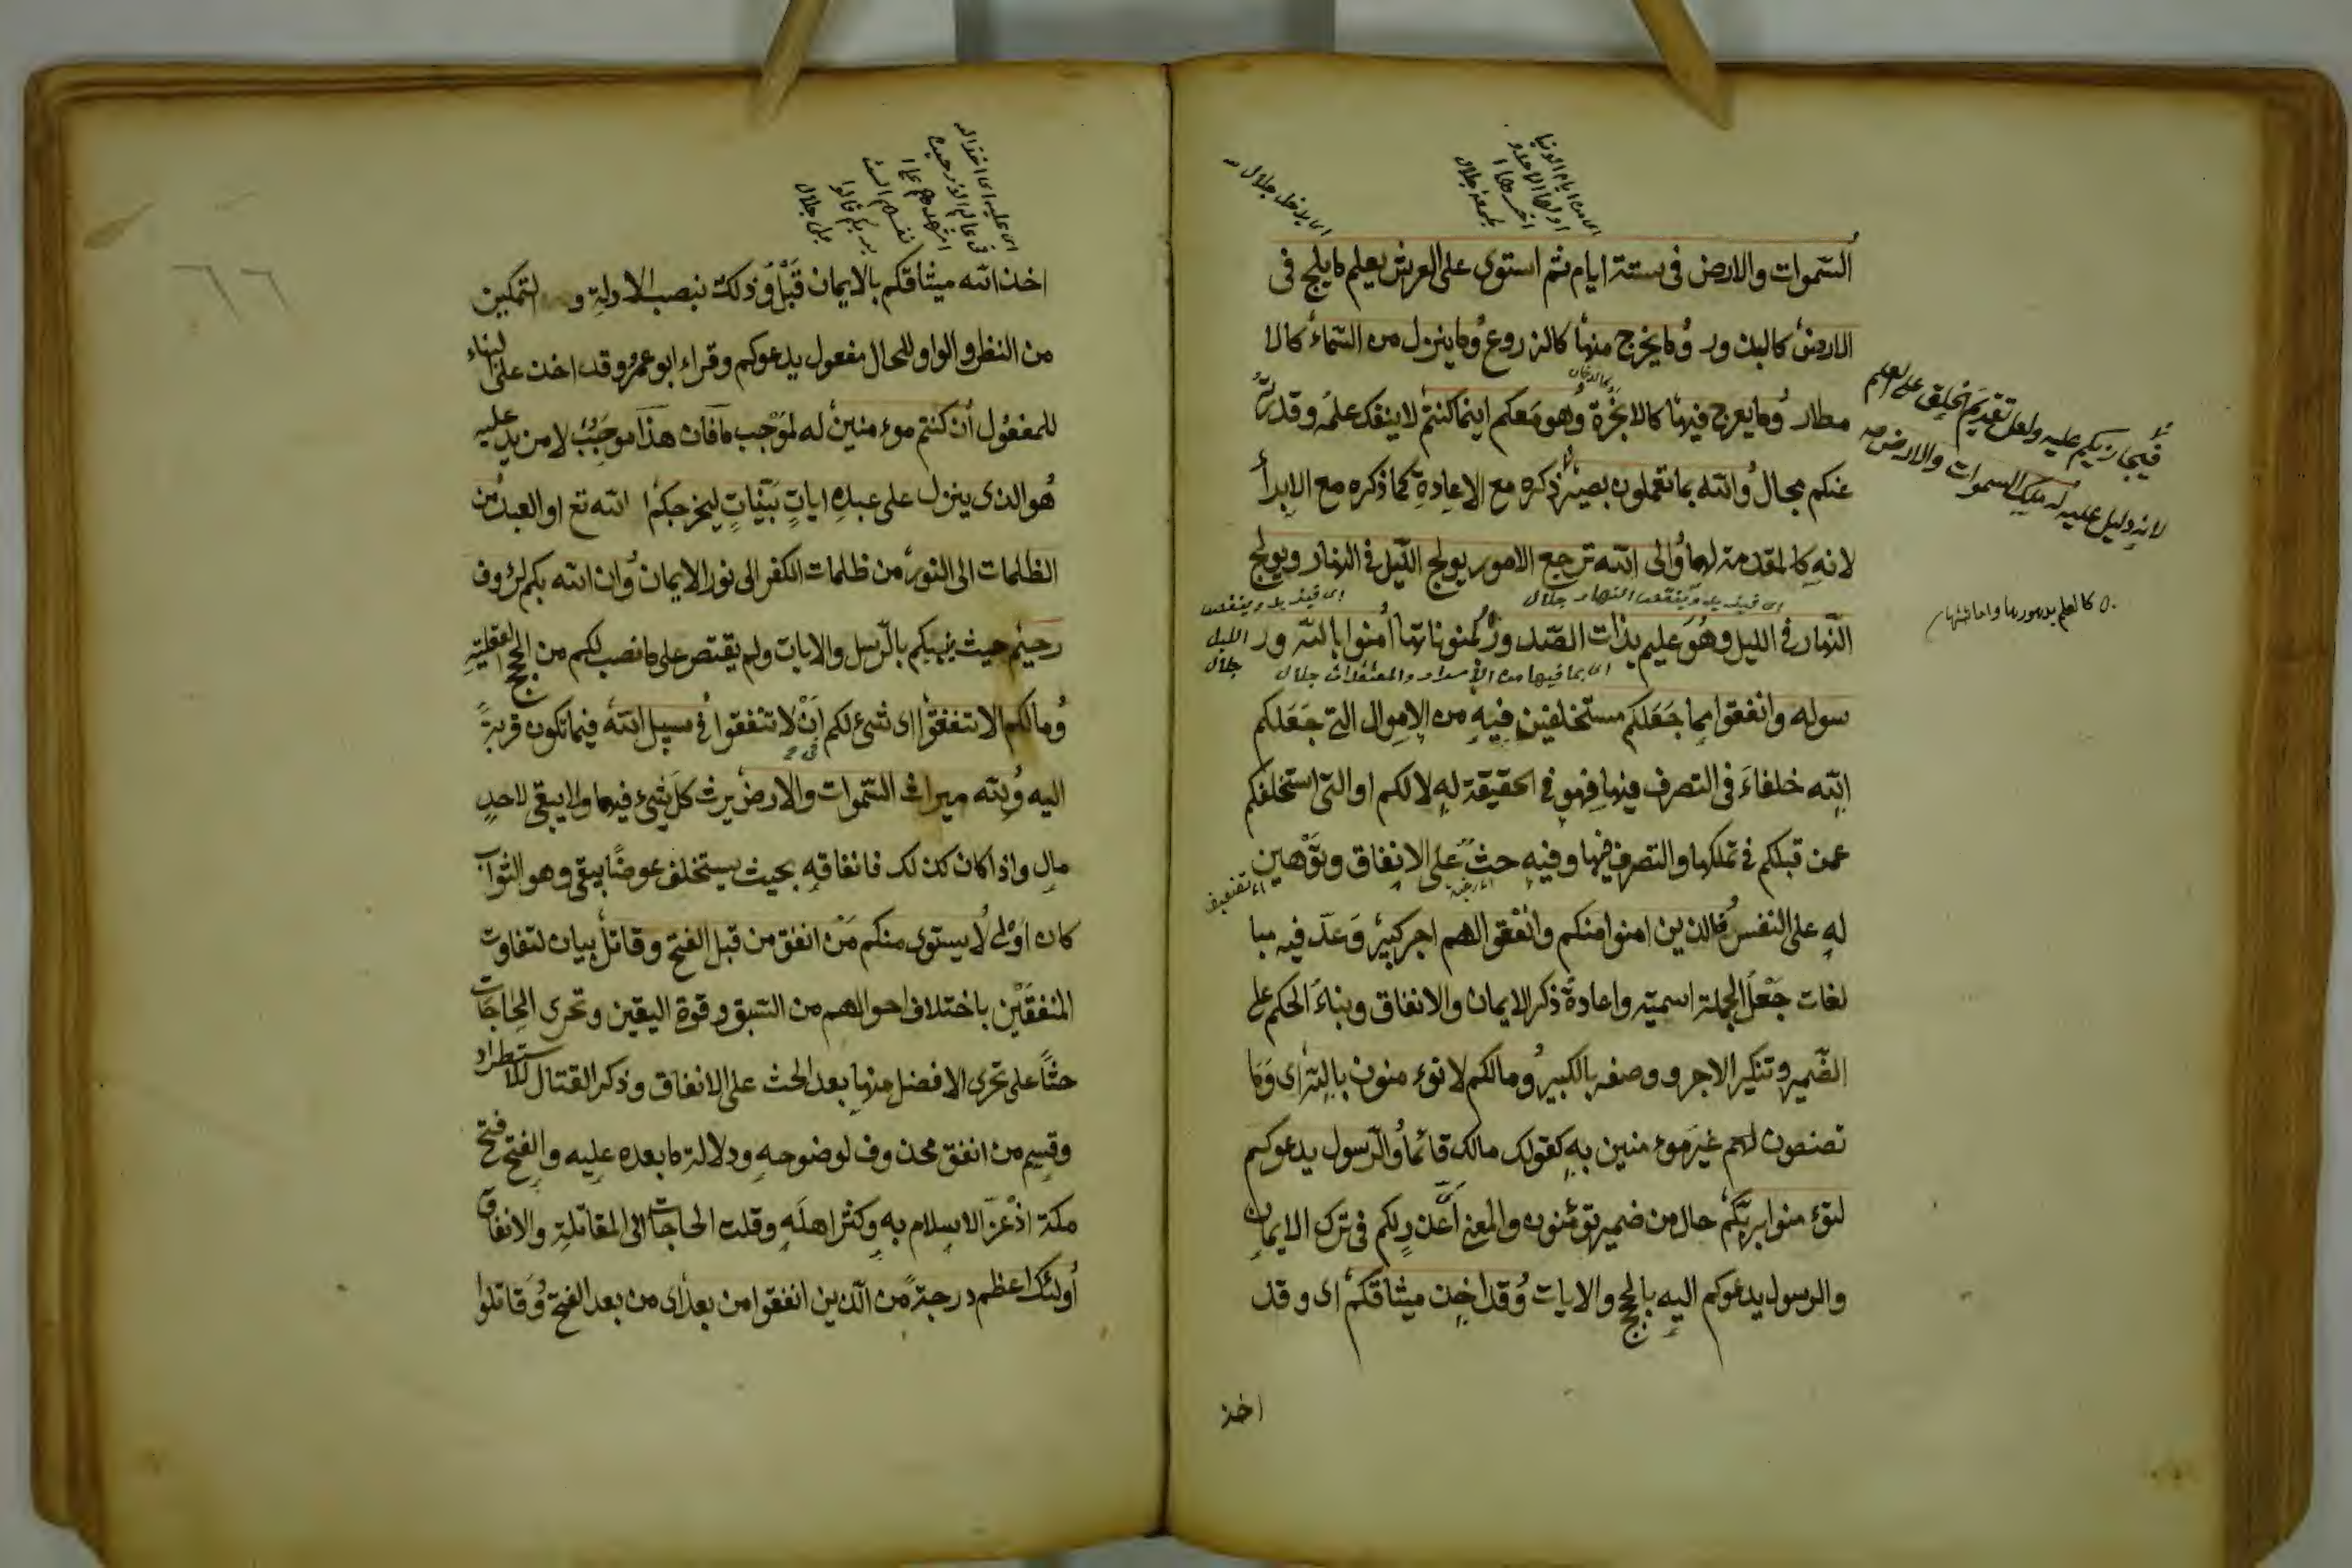 السموات والارض فى ستة ايام ثم استوى على العرش يعلم ما يلج فى
الارض كالبذور وما يخرج منها كالزروع وما ينزل من السماء كالا
مطار وما يعرج فيها كالابخرة وهو معكم اينما كنتم لا ينفك علمه وقدرته
عنكم بحال والله بما تعملون بصير ذكره مع الاعادة كما ذكره مع الابدأ
لانه كالمقدمة لهما والى الله ترجع الامور يولج الليل فى النهار ويولج
النهار فى الليل وهو عليم بذات الصدور بمكنوناتها أمنوا بالله ور
سوله وانفقوا مما جعلكم مستخلفين فيه من الاموال التى جعلكم
الله خلفاء فى التصرف فيها فهو فى الحقيقة له لا لكم او التى استخلفكم
عمن قبلكم فى تملكها والتصرف فيها وفيه حث على الانفاق وتوهين
له على النفس فالذين امنوا منكم وانفقوا لهم اجر كبير وعد فيه مبا
لغات جعل الجملة اسمية واعادة ذكر الايمان والانفاق وبناء الحكم على
الضمير وتنكير الاجر ووصفه بالكبير وما لكم لا تؤمنون بالله اى وما
تصنعون لهم غير مؤمنين به كقولك مالك قائما والرسول يدعوكم
لتؤمنوا بربكم حال من ضمير تؤمنون والمعنى أى عذر لكم فى ترك الايمان
والرسول يدعوكم اليه بالحجج والايات وقد اخذ ميثاقكم اى وقد
اخذ
اى يدخل جلال
اى من ايام الدنيا
اولها الاحد و
اخرها
الجمعة جلال
فيجازيكم عليه ولعل تقديم الخلق على العلم
لانه دليل عليه له ملك السموات والارض
اى فيزيد وينقص النهار جلال
اى فيزيد وينقص
الليل
جلال
اى بما فيها من الأسرار والمعتقدات جلال
٦٦
اخذ الله ميثاقكم بالايمان قبل وذلك بنصب الادلة و التمكين
من النظر والواو للحال مفعول يدعوكم وقراء ابو عمرو وقد اخذ على البناء
للمفعول أن كنتم مؤمنين له لموجب ما فان هذا موجب لا مزيد عليه
هو الذى ينزل على عبده ايات بينات ليخرجكم الله تع او العبد من
الظلمات الى النور من ظلمات الكفر الى نور الايمان وان الله بكم لرؤف
رحيم حيث ينبهكم بالرسل والايات ولم يقتصر على ما نصب لكم من الحجج العقلية
وما لكم الا تنفقوا اى شئ لكم ان لا تنفقوا فى سبيل الله فيما تكون قربة
اليه ولله ميراث السموات والارض يرث كل شئ فيهما ولا يبقى لاحد
مال واذا كان كذلك فانفاقه بحيث يستخلف عوضا يبقى وهو الثواب
كان اولى لا يستوى منكم من انفق من قبل الفتح وقاتل بيان لتفاوت
المنفقين باختلاف احوالهم من السبق وقوة اليقين وتحرى الحاجات
حثا على تحرى الافضل منها بعد الحث على الانفاق وذكر القتال للاستطراد
وقسيم من انفق محذوف لوضوحه ودلالة ما بعده عليه والفتح فتح
مكة اذ عز الاسلام به وكثر اهله وقلت الحاجات الى المقاتلة والانفاق
أولئك اعظم درجة من الذين انفقوا من بعد اى من بعد الفتح وقاتلوا